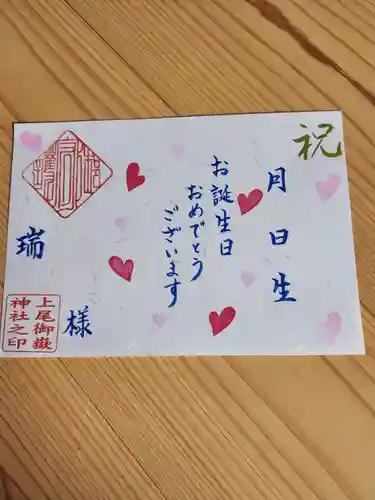 祝
月 日 生
お誕生日
おめでとう
ございます
瑞 様
上尾御嶽
神社之印